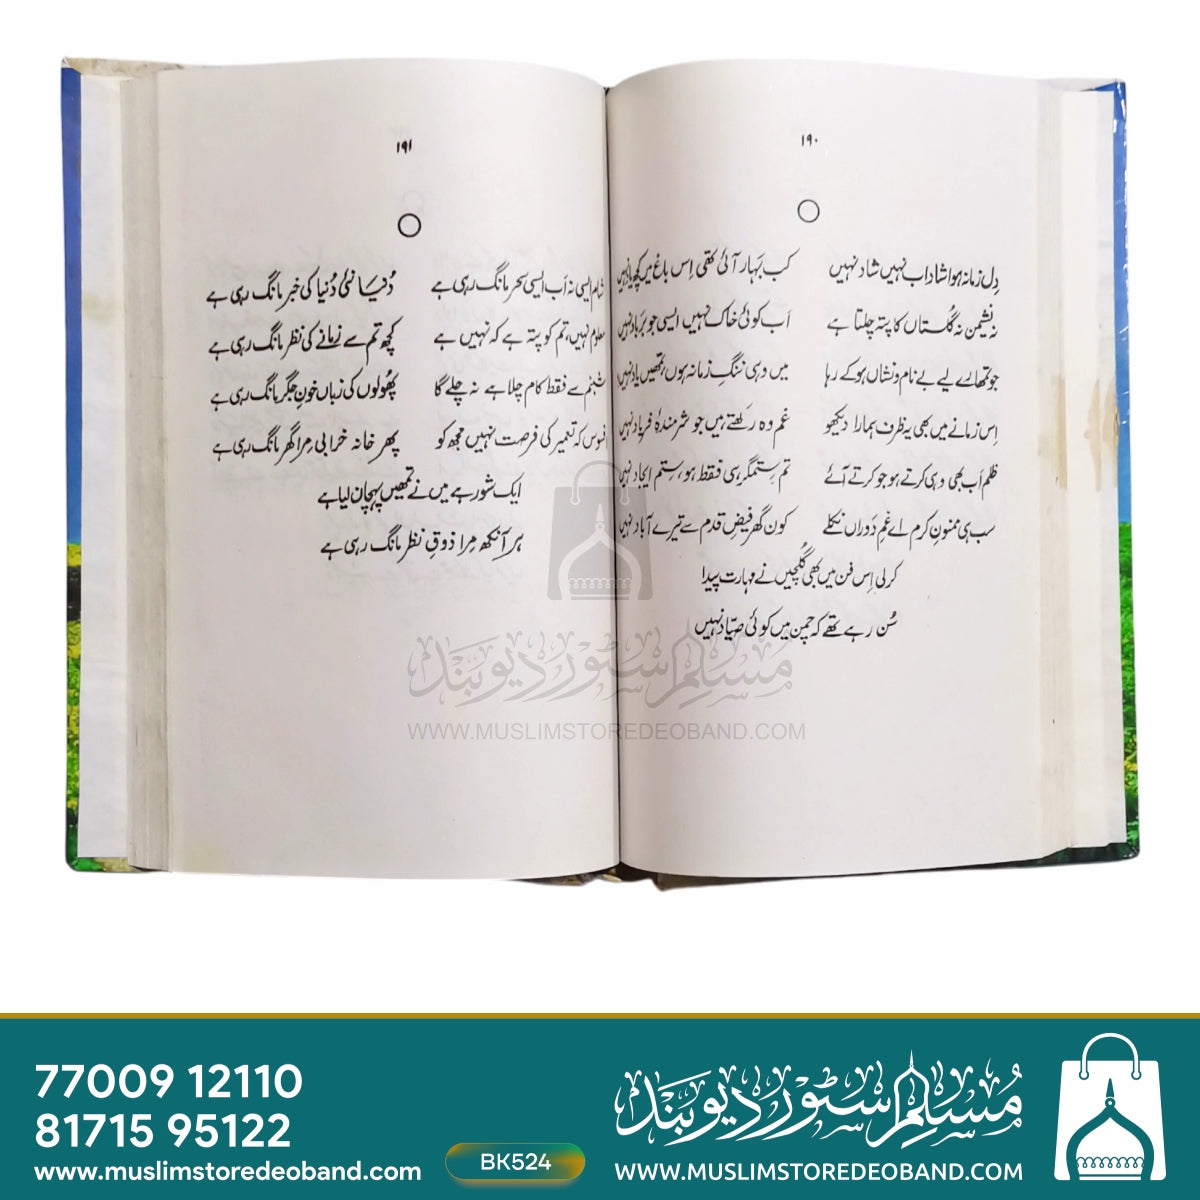 ۱۹۰
دِل زمانہ ہوا شاداب نہیں شاد نہیں کب بَہار آئی تھی اِس باغ میں کچھ یاد نہیں
نہ نشیمن نہ گُلستاں کا پتہ چلتا ہے اَب کوئی خاک نہیں ایسی جو برباد نہیں
جو تمھارے لیے بے نام و نشاں ہو کے رہا میں وہی ننگِ زمانہ ہوں تمھیں یاد نہیں
اِس زمانے میں بھی یہ ظرف ہمارا دیکھو غم وہ رکھتے ہیں جو شرمندۂ فریاد نہیں
ظلم اَب بھی وہی کرتے ہو جو کرتے آئے تم ستمگر ہی فقط ہو، ستم ایجاد نہیں
سب ہی ممنونِ کرم اے غمِ دَوراں نکلے کون گھر فیضِ قدم سے تیرے آباد نہیں
کر لی اِس فن میں بھی گُلچیں نے مہارت پیدا
سُن رہے تھے کہ چمن میں کوئی صیّاد نہیں
۱۹۱
شام ایسی نہ اَب ایسی سحر مانگ رہی ہے دُنیا نئی دُنیا کی خبر مانگ رہی ہے
معلوم نہیں، تم کو پتہ ہے کہ نہیں ہے کچھ تم سے زمانے کی نظر مانگ رہی ہے
شبنم سے فقط کام چلا ہے نہ چلے گا پھولوں کی زباں خونِ جگر مانگ رہی ہے
افسوس کہ تعمیر کی فرصت نہیں مجھ کو پھر خانہ خرابی مِرا گھر مانگ رہی ہے
ایک شور ہے میں نے تمھیں پہچان لیا ہے
ہر آنکھ مِرا ذوقِ نظر مانگ رہی ہے
مسلم سٹور دیوبند
WWW.MUSLIMSTOREDEOBAND.COM
77009 12110
81715 95122
www.muslimstoredeoband.com
BK524
مسلم سٹور دیوبند
WWW.MUSLIMSTOREDEOBAND.COM